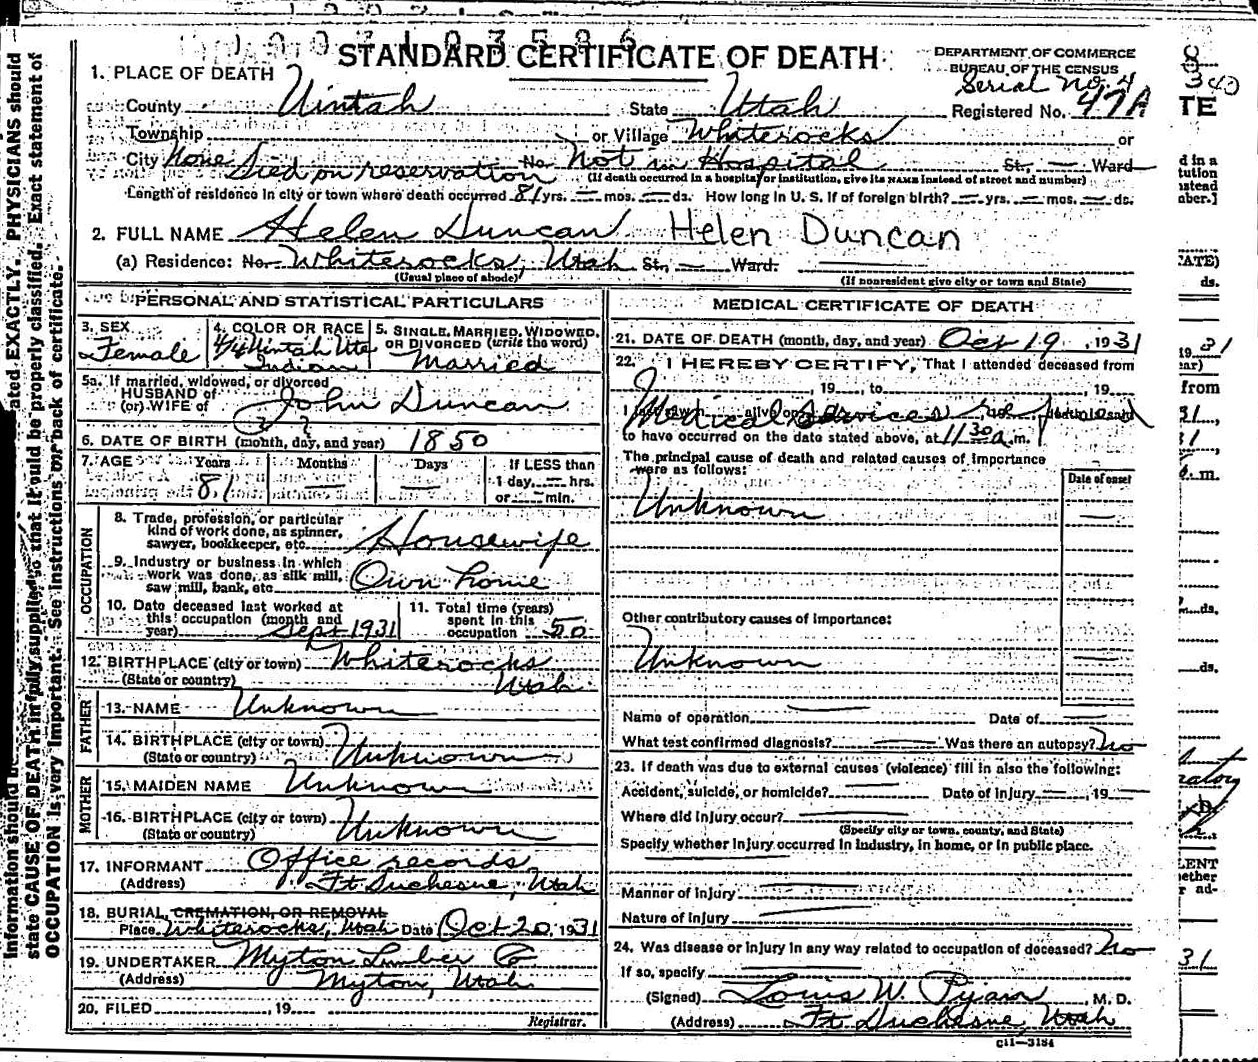 1003103596
STANDARD CERTIFICATE OF DEATH
DEPARTMENT OF COMMERCE
BUREAU OF THE CENSUS
Serial No. 4
1. PLACE OF DEATH
County Uintah State Utah Registered No. 47A
Township or Village Whiterocks or
City None Died on reservation No. Not in Hospital St., — Ward
(If death occurred in a hospital or institution, give its NAME instead of street and number)
Length of residence in city or town where death occurred 81 yrs. — mos. — ds. How long in U. S. if of foreign birth? — yrs. — mos. — ds.
2. FULL NAME Helen Duncan Helen Duncan
(a) Residence: No. Whiterocks, Utah St., — Ward.
(Usual place of abode) (If nonresident give city or town and State)
PERSONAL AND STATISTICAL PARTICULARS
3. SEX
Female
4. COLOR OR RACE
4/4 Uintah Ute
Indian
5. SINGLE, MARRIED, WIDOWED,
OR DIVORCED (write the word)
Married
5a. If married, widowed, or divorced
HUSBAND of
(or) WIFE of John Duncan
6. DATE OF BIRTH (month, day, and year) 1850
7. AGE Years Months Days If LESS than
81 — — 1 day, — hrs.
or — min.
OCCUPATION
8. Trade, profession, or particular
kind of work done, as spinner,
sawyer, bookkeeper, etc. Housewife
9. Industry or business in which
work was done, as silk mill,
saw mill, bank, etc. Own home
10. Date deceased last worked at
this occupation (month and
year) Sept 1931
11. Total time (years)
spent in this
occupation 50
12. BIRTHPLACE (city or town) Whiterocks
(State or country) Utah
FATHER
13. NAME Unknown
14. BIRTHPLACE (city or town) Unknown
(State or country)
MOTHER
15. MAIDEN NAME Unknown
16. BIRTHPLACE (city or town) Unknown
(State or country)
17. INFORMANT Office records
(Address) Ft Duchesne, Utah
18. BURIAL, CREMATION, OR REMOVAL
Place Whiterocks, Utah Date Oct 20, 1931
19. UNDERTAKER Myton Lumber Co
(Address) Myton, Utah
20. FILED , 19
Registrar.
MEDICAL CERTIFICATE OF DEATH
21. DATE OF DEATH (month, day, and year) Oct 19, 1931
22. I HEREBY CERTIFY, That I attended deceased from
, 19 to , 19
Medical Services
to have occurred on the date stated above, at 11 30 a m.
The principal cause of death and related causes of importance
were as follows:
Date of onset
Unknown —
Other contributory causes of importance:
Unknown —
Name of operation — Date of —
What test confirmed diagnosis? — Was there an autopsy? No
23. If death was due to external causes (violence) fill in also the following:
Accident, suicide, or homicide? — Date of injury —, 19 —
Where did injury occur? —
(Specify city or town, county, and State)
Specify whether injury occurred in industry, in home, or in public place.
Manner of injury —
Nature of injury —
24. Was disease or injury in any way related to occupation of deceased? No
If so, specify —
(Signed) Louis W. , M. D.
(Address) Ft Duchesne, Utah
C11—3184
PHYSICIANS should
state CAUSE OF DEATH in
so that it would be properly classified. Exact statement of
OCCUPATION is very important. See instructions on back of certificate.